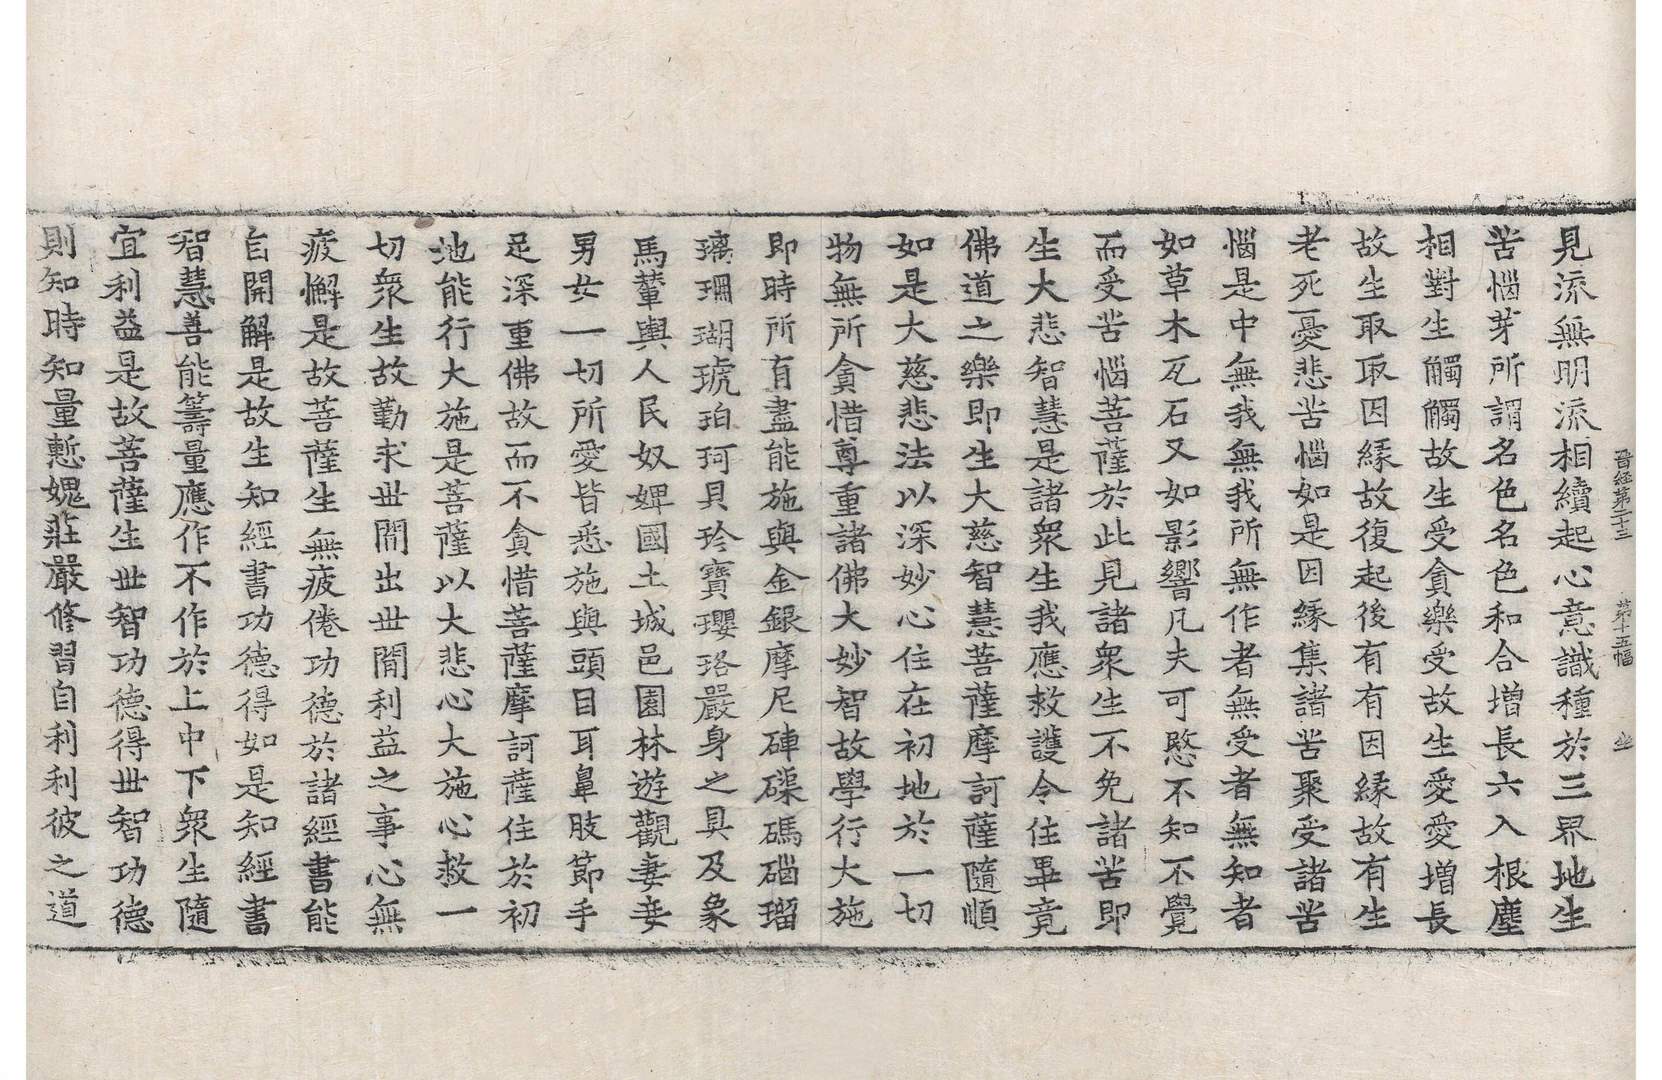 晉經第二十三 第十五幅 坐
見流無明流相續起心意識種於三界地生
苦惱芽所謂名色名色和合增長六入根塵
相對生觸觸故生受貪樂受故生愛愛增長
故生取取因緣故復起後有有因緣故有生
老死憂悲苦惱如是因緣集諸苦聚受諸苦
惱是中無我無我所無作者無受者無知者
如草木瓦石又如影響凡夫可愍不知不覺
而受苦惱菩薩於此見諸衆生不免諸苦即
生大悲智慧是諸衆生我應救護令住畢竟
佛道之樂即生大慈智慧菩薩摩訶薩隨順
如是大慈悲法以深妙心住在初地於一切
物無所貪惜尊重諸佛大妙智故學行大施
即時所有盡能施與金銀摩尼硨磲碼碯瑠
璃珊瑚琥珀珂貝珍寶瓔珞嚴身之具及象
馬輦輿人民奴婢國土城邑園林遊觀妻妾
男女一切所愛皆悉施與頭目耳鼻肢節手
足深重佛故而不貪惜菩薩摩訶薩住於初
地能行大施是菩薩以大悲心大施心救一
切衆生故勤求世間出世間利益之事心無
疲懈是故菩薩生無疲倦功德於諸經書能
自開解是故生知經書功德得如是知經書
智慧善能籌量應作不作於上中下衆生隨
宜利益是故菩薩生世智功德得世智功德
則知時知量慙愧莊嚴修習自利利彼之道